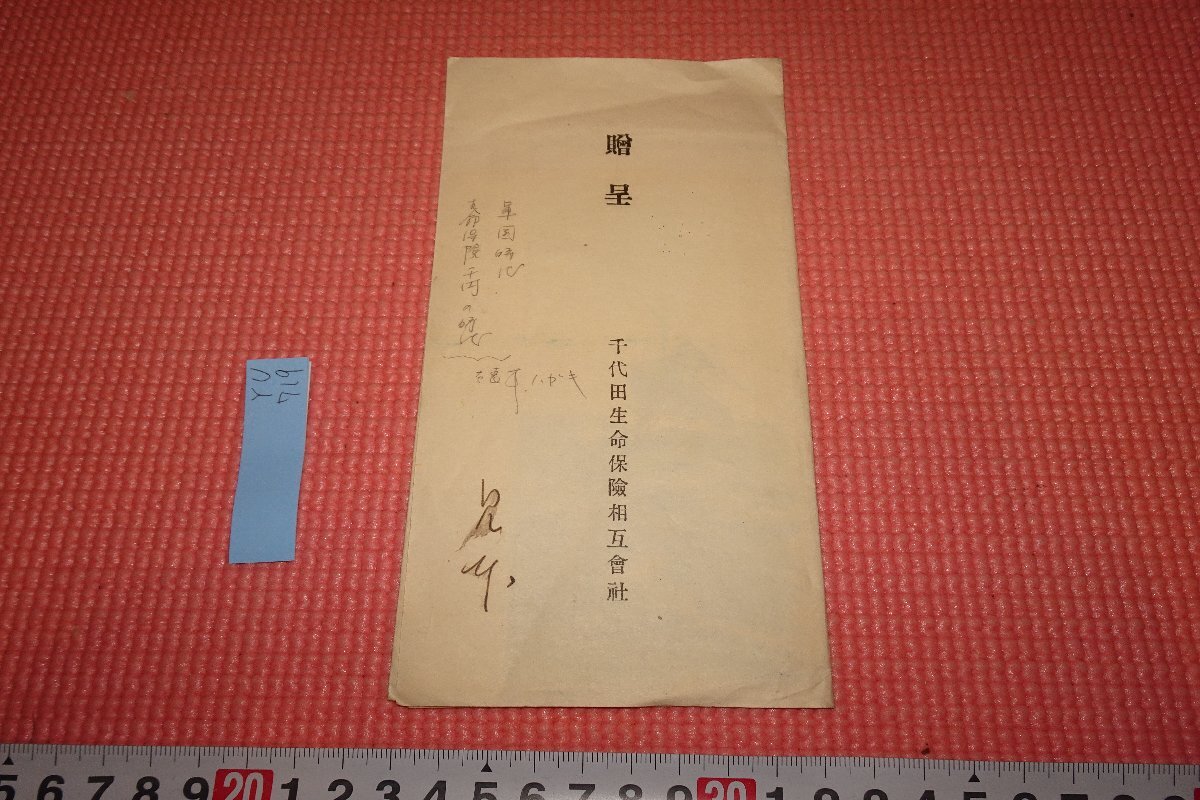 贈呈
千代田生命保險相互會社
軍国時代
生命保険千円の時代
ハガキ
YU
719
5 6 7 8 9 20 1 2 3 4 5 6 7 8 9 30 1 2 3 4 5 6 7